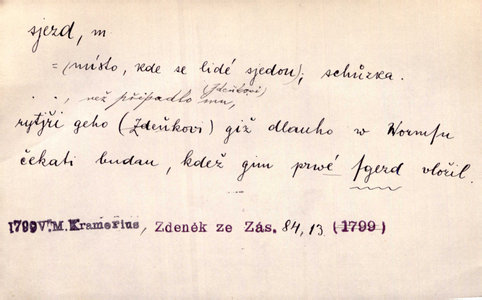 sjezd, m.
= (místo, kde se lidé sjedou); schůzka.
. . , než připadlo mu, (Zdeňkovi)
rytjři geho (Zdeňkovi) giž dlauho w Wormsu
čekati budau, kdež gim prwé sgezd vložil.
1799 V. M. Kramerius, Zdeněk ze Zás. 84, 13 (1799)